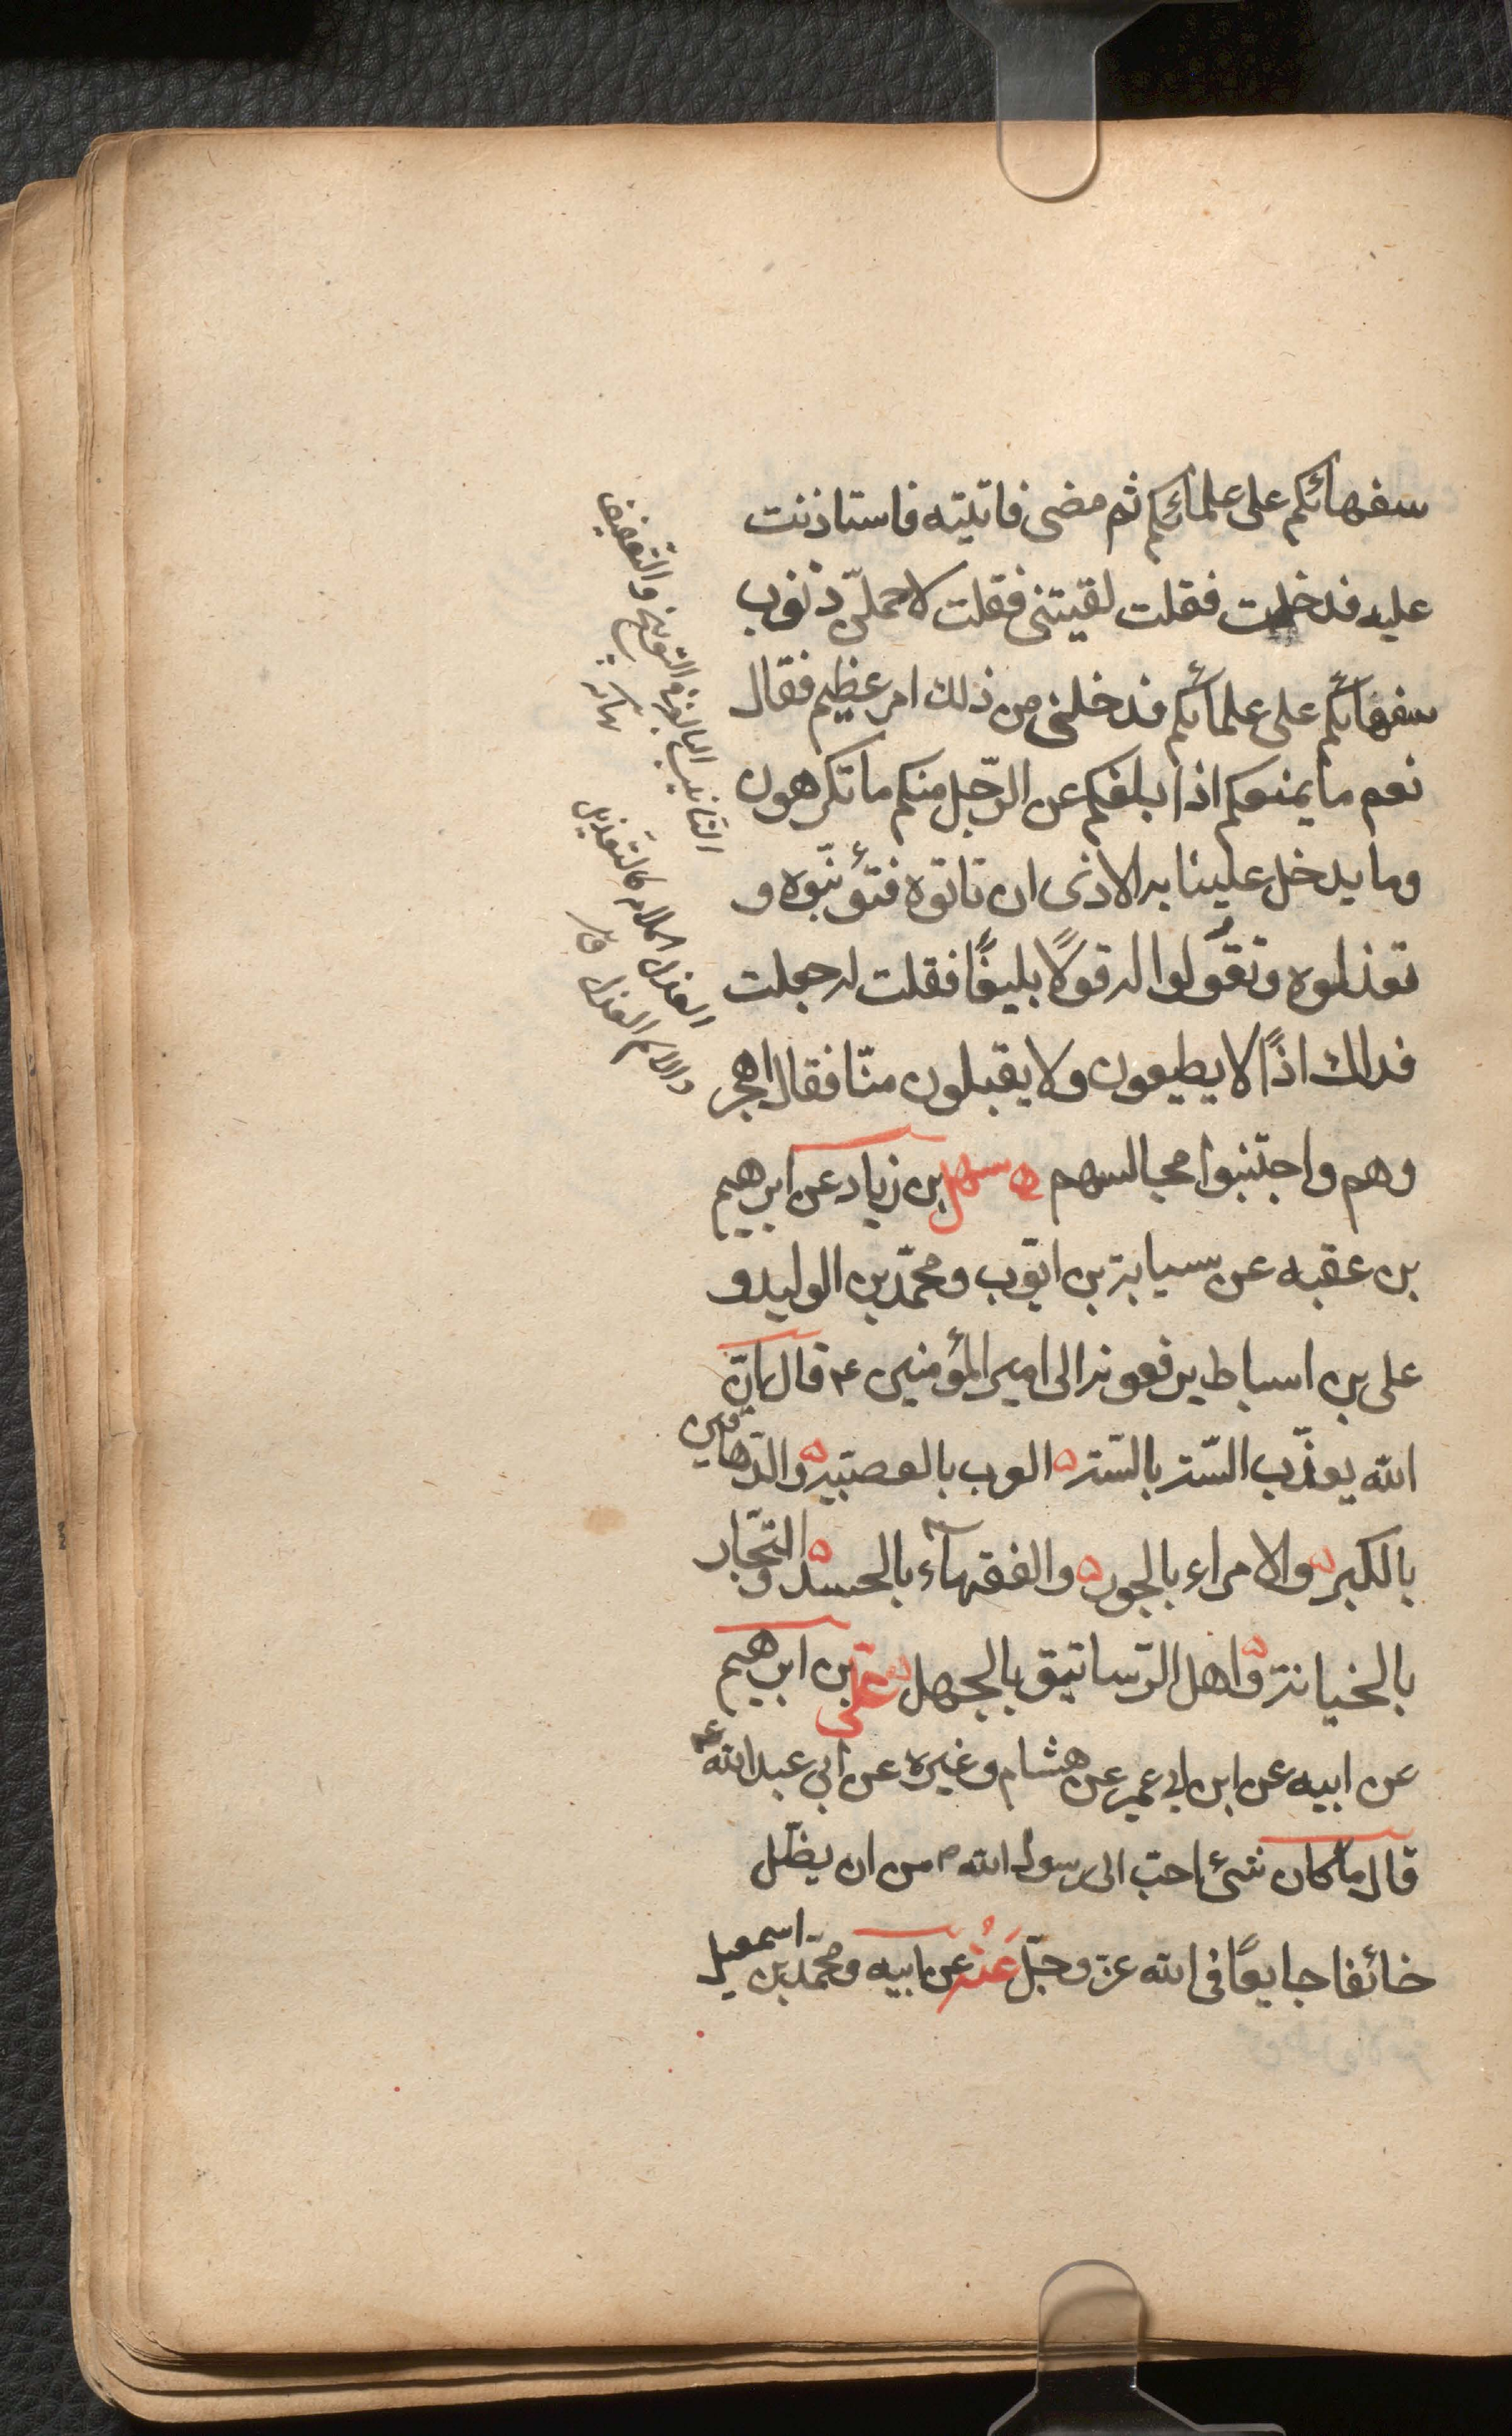 سفهائكم على علمائكم ثم مضى فاتيته فاستاذنت
عليه فدخلت فقلت لقيتنى فقلت لاحملنّ ذنوب
سفهائكم على علمائكم فدخلنى من ذلك امر عظيم فقال
نعم ما يمنعكم اذا بلغكم عن الرّجل منكم ما تكرهون
وما يدخل علينا به الاذى ان تاتوه فتؤنّبوه و
تعذلوه وتقولوا له قولًا بليغًا فقلت له جعلت
فداك اذًا لا يطيعون ولا يقبلون منّا فقال اهجر
وهم واجتنبوا مجالسهم ه سهل بن زياد عن ابرهيم
بن عقبه عن سيابة بن ايّوب ومحمّد بن الوليد و
على بن اسباط يرفعونه الى امير المؤمنين ع قال انّ
الله يعذّب الستّة بالستّة ه العرب بالعصبيّة ه والدّهاقين
بالكبر ه والامراء بالجور ه والفقهآء بالحسد ه والتّجّار
بالخيانة ه واهل الرّساتيق بالجهل ه علىّ بن ابرهيم
عن ابيه عن ابن ابى عمير عن هشام وغيره عن ابى عبد الله ع
قال ما كان شئ احبّ الى رسول الله ص من ان يظلّ
خائفا جايعًا فى الله عز وجلّ عَنْهُ عن ابيه ومحمّد بن اسمعيل
التانيب المبالغة فى التوبيخ والتعنيف
نهاية
العذل الملامة كالتعذيل
والاسم العذل ق